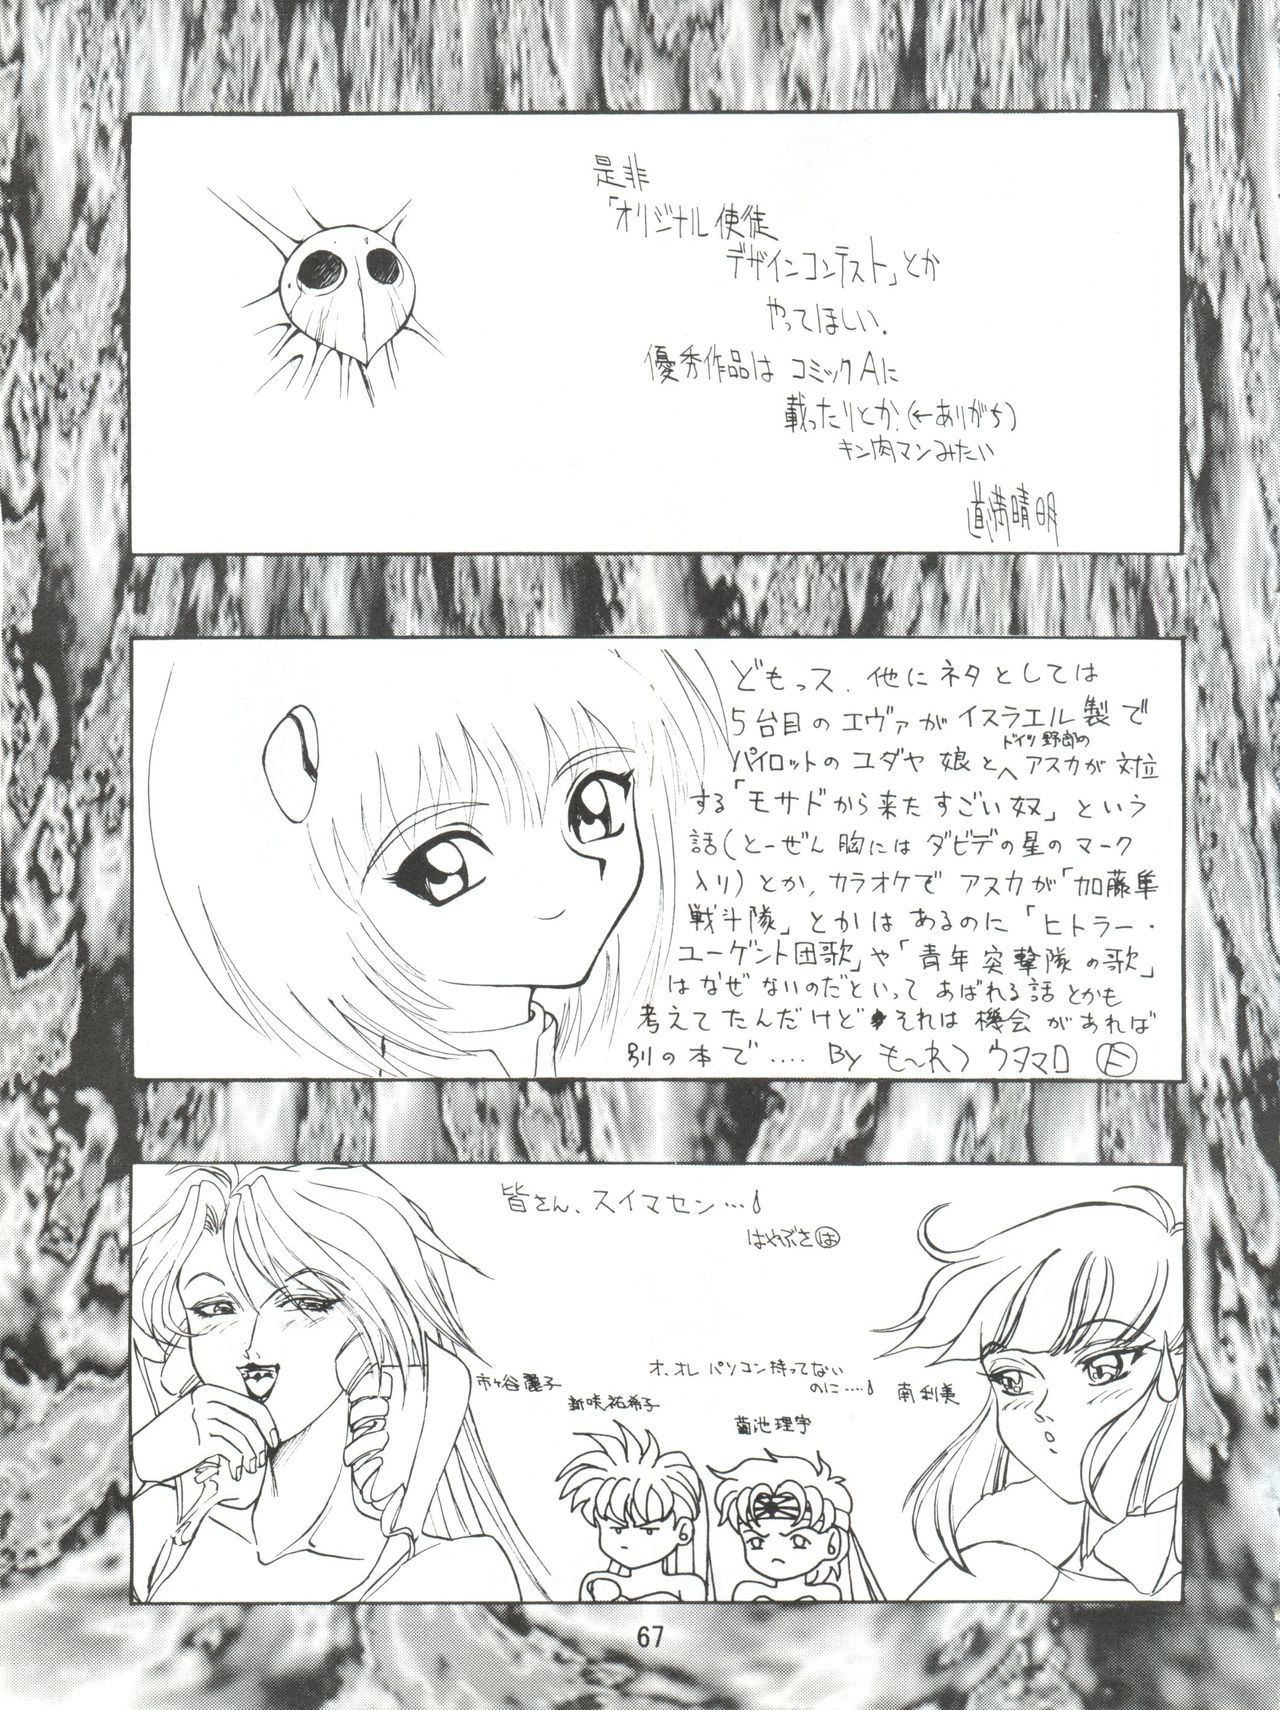 是非
「オリジナル使徒
デザインコンテスト」とか
やってほしい.
優秀作品は コミックAに
載ったりとか.(←ありがち)
キン肉マンみたい
道満晴明
どもっス. 他にネタとしては
5台目のエヴァがイスラエル製で
パイロットのユダヤ娘とドイツ野郎のアスカが対立
する「モサドから来たすごい奴」という
話(とーぜん胸にはダビデの星のマーク
入り)とか,カラオケでアスカが「加藤隼
戦斗隊」とかはあるのに「ヒトラー・
ユーゲント団歌」や「青年突撃隊の歌」
はなぜないのだといってあばれる話とかも
考えてたんだけど それは機会があれば
別の本で.... By も〜れつウタマロ
皆さん、スイマセン…
はやぶさ は
市ヶ谷麗子
新咲祐希子
オ、オレ パソコン持ってない
のに….
菊池理宇
南利美
67